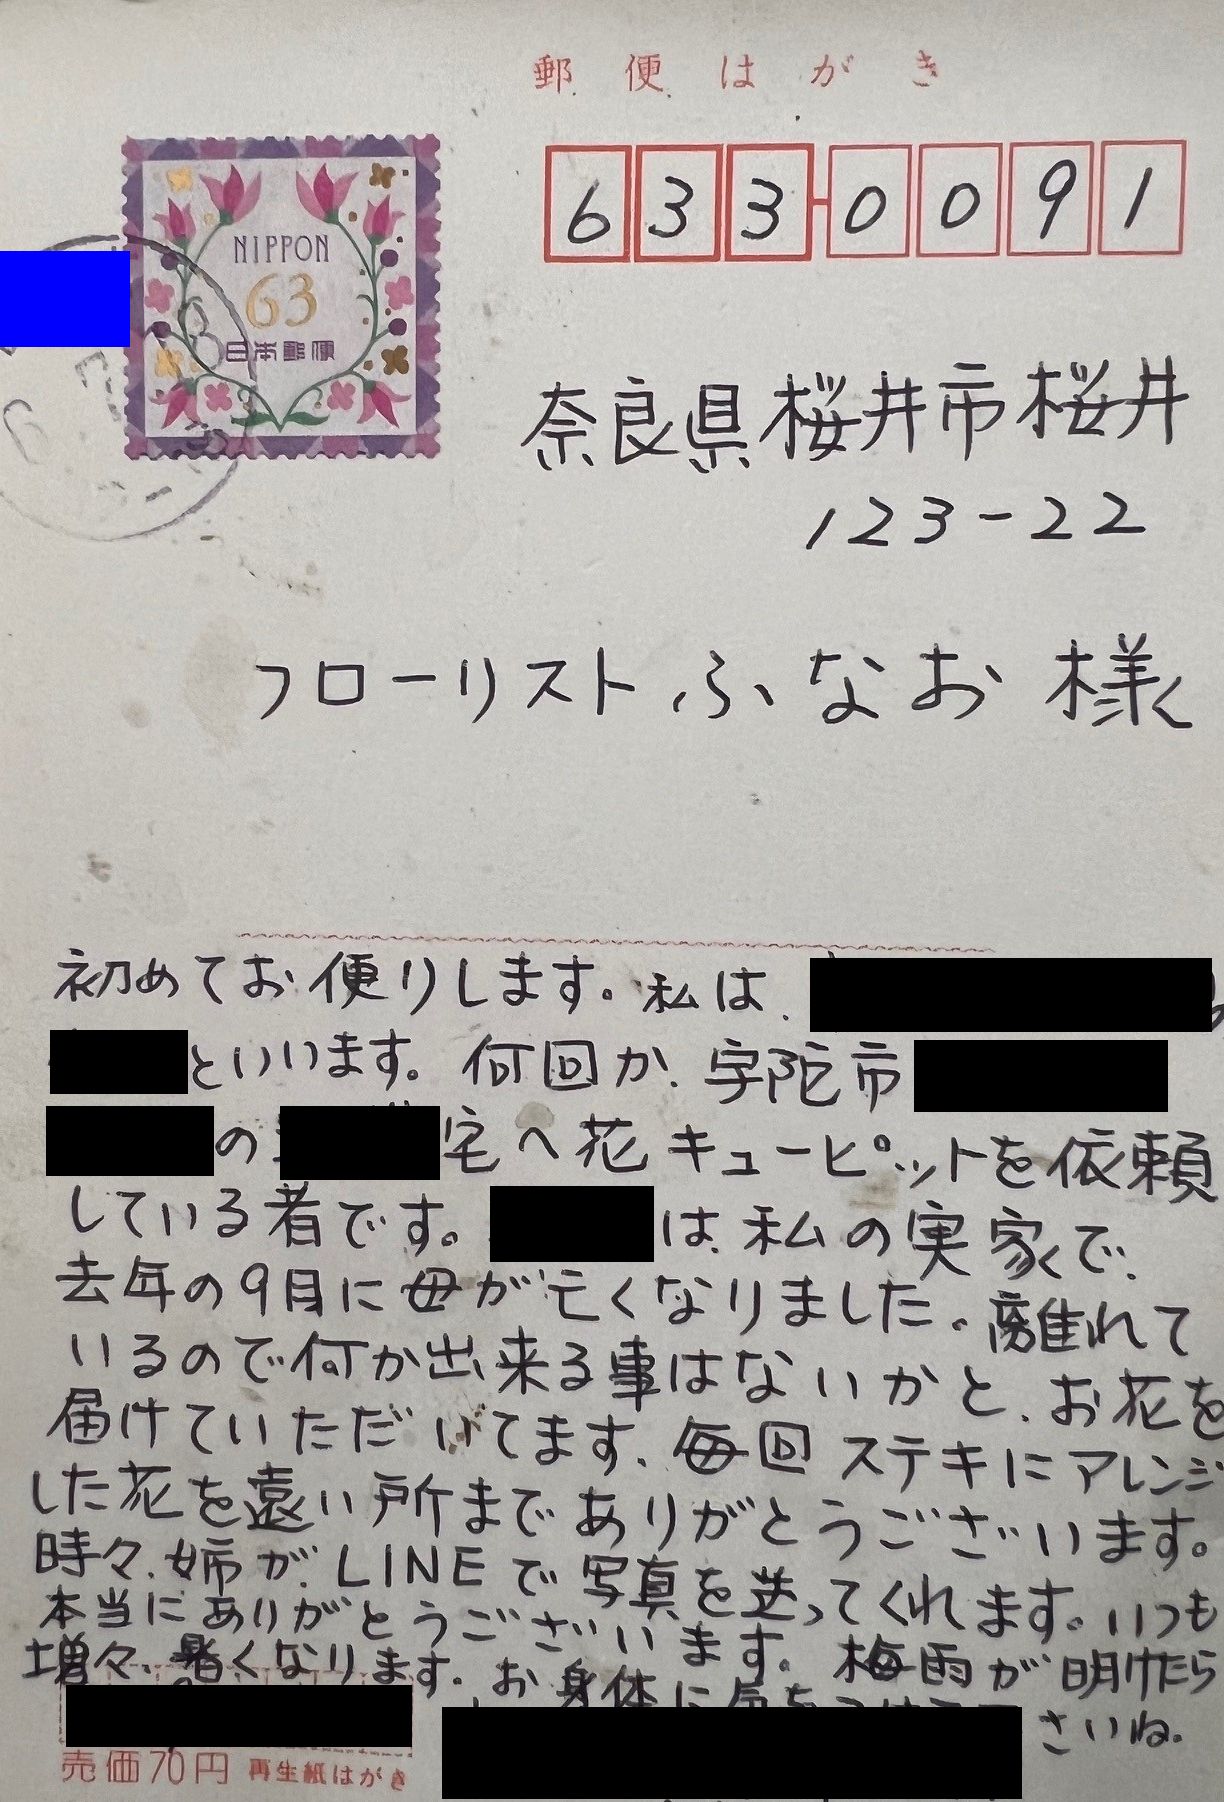 郵便はがき
NIPPON
63
日本郵便
633-0091
奈良県桜井市桜井
123-22
フローリストふなお 様
初めてお便りします。私は、
といいます。何回か、宇陀市
の 宅へ花キューピットを依頼
している者です。 は、私の実家で、
去年の9月に母が亡くなりました。離れて
いるので何か出来る事はないかと、お花を
届けていただいてます、毎回ステキにアレンジ
した花を遠い所までありがとうございます。
時々、姉が、LINEで写真を送ってくれます。いつも
本当にありがとうございます。梅雨が明けたら
増々、暑くなります。お身体に
さいね。
売価70円 再生紙はがき